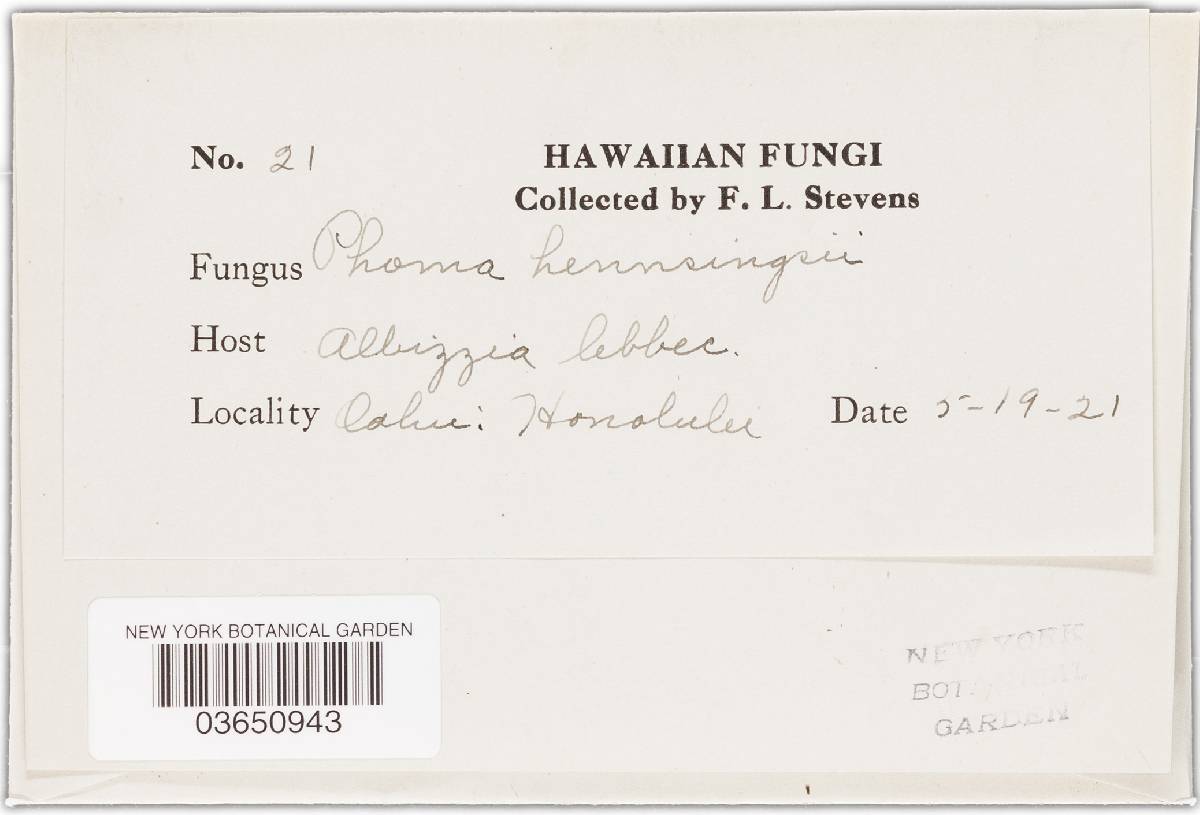 No. 21
HAWAIIAN FUNGI
Collected by F. L. Stevens
Fungus Phoma hennsingsii
Host Albizzia lebbec.
Locality Oahu: Honolulu Date 5-19-21
NEW YORK BOTANICAL GARDEN
03650943
NEW YORK
BOTANICAL
GARDEN